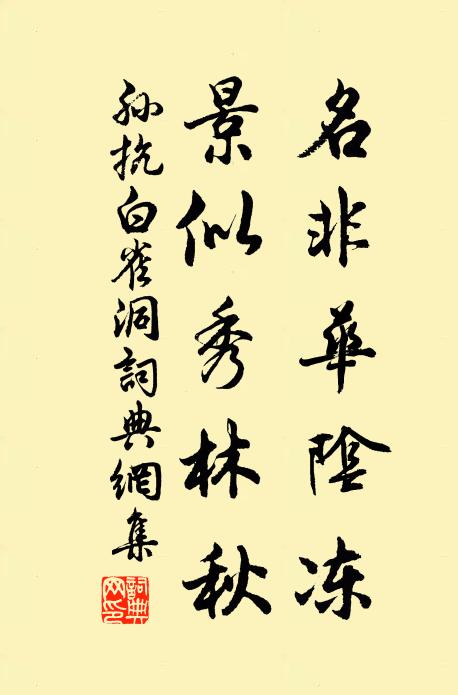 名非華陰冻
景似秀林秋
孙抗白雀洞詞典網集
詞典网印